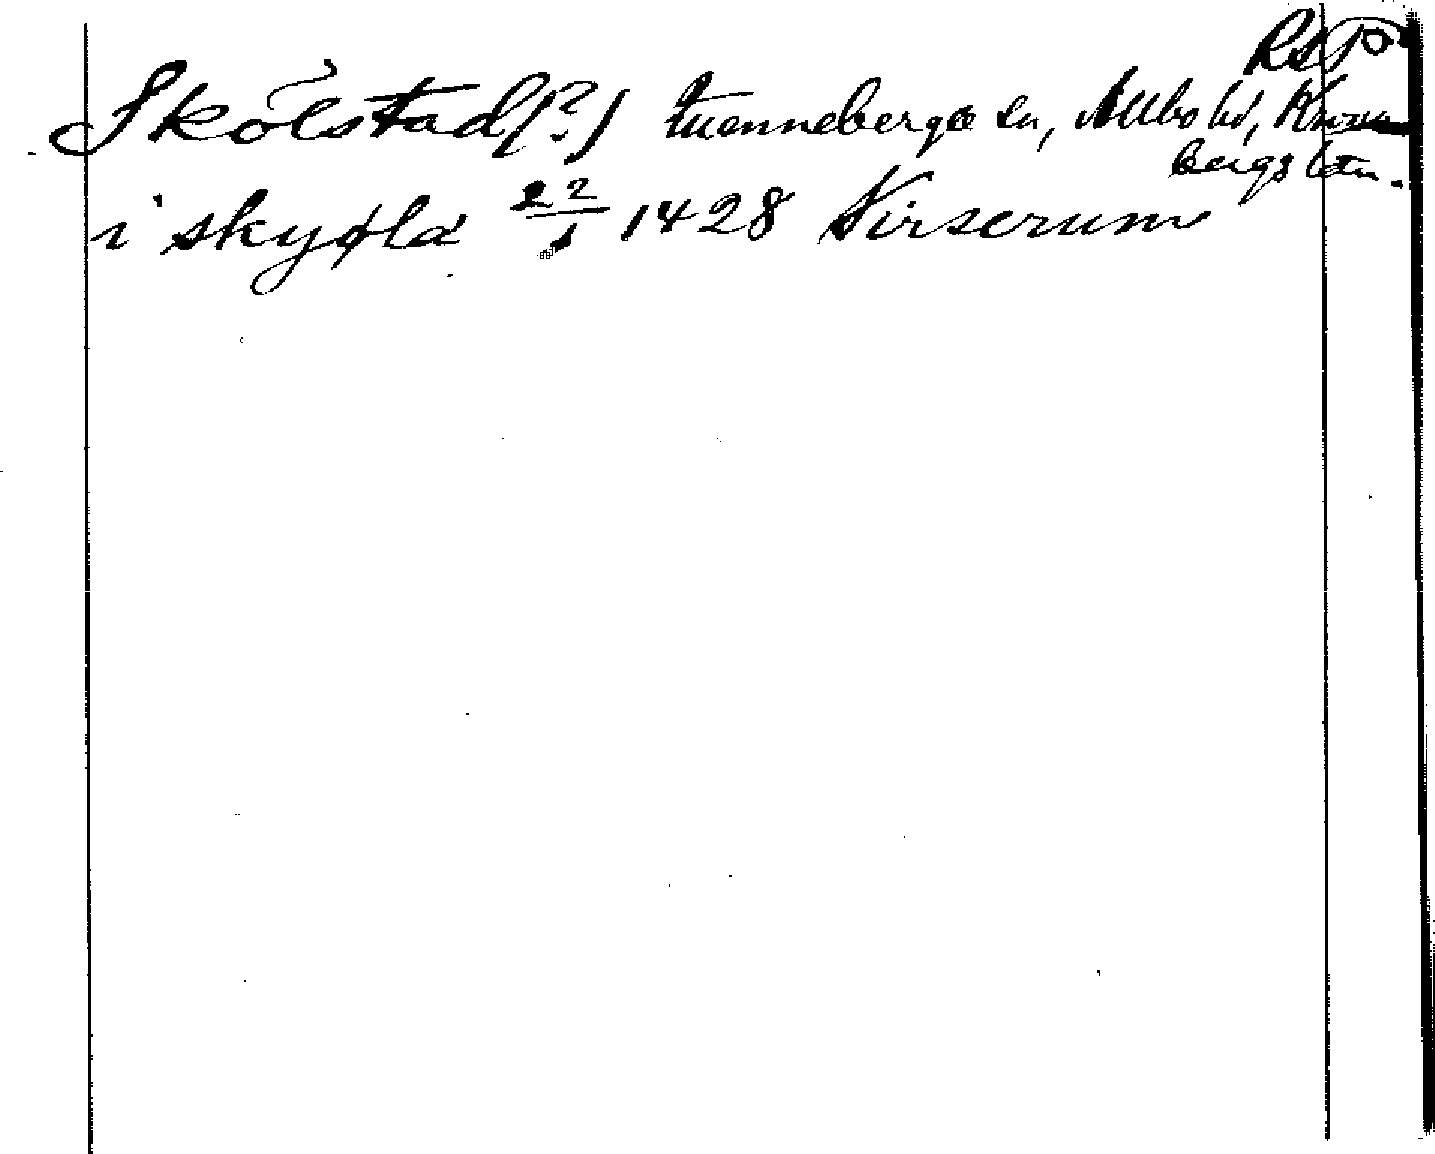 RAP
Skölstad(?) tuenneberga sn, Allbo hd, Krono
bergs län.
i skyøla 22/1 1428 Virserum